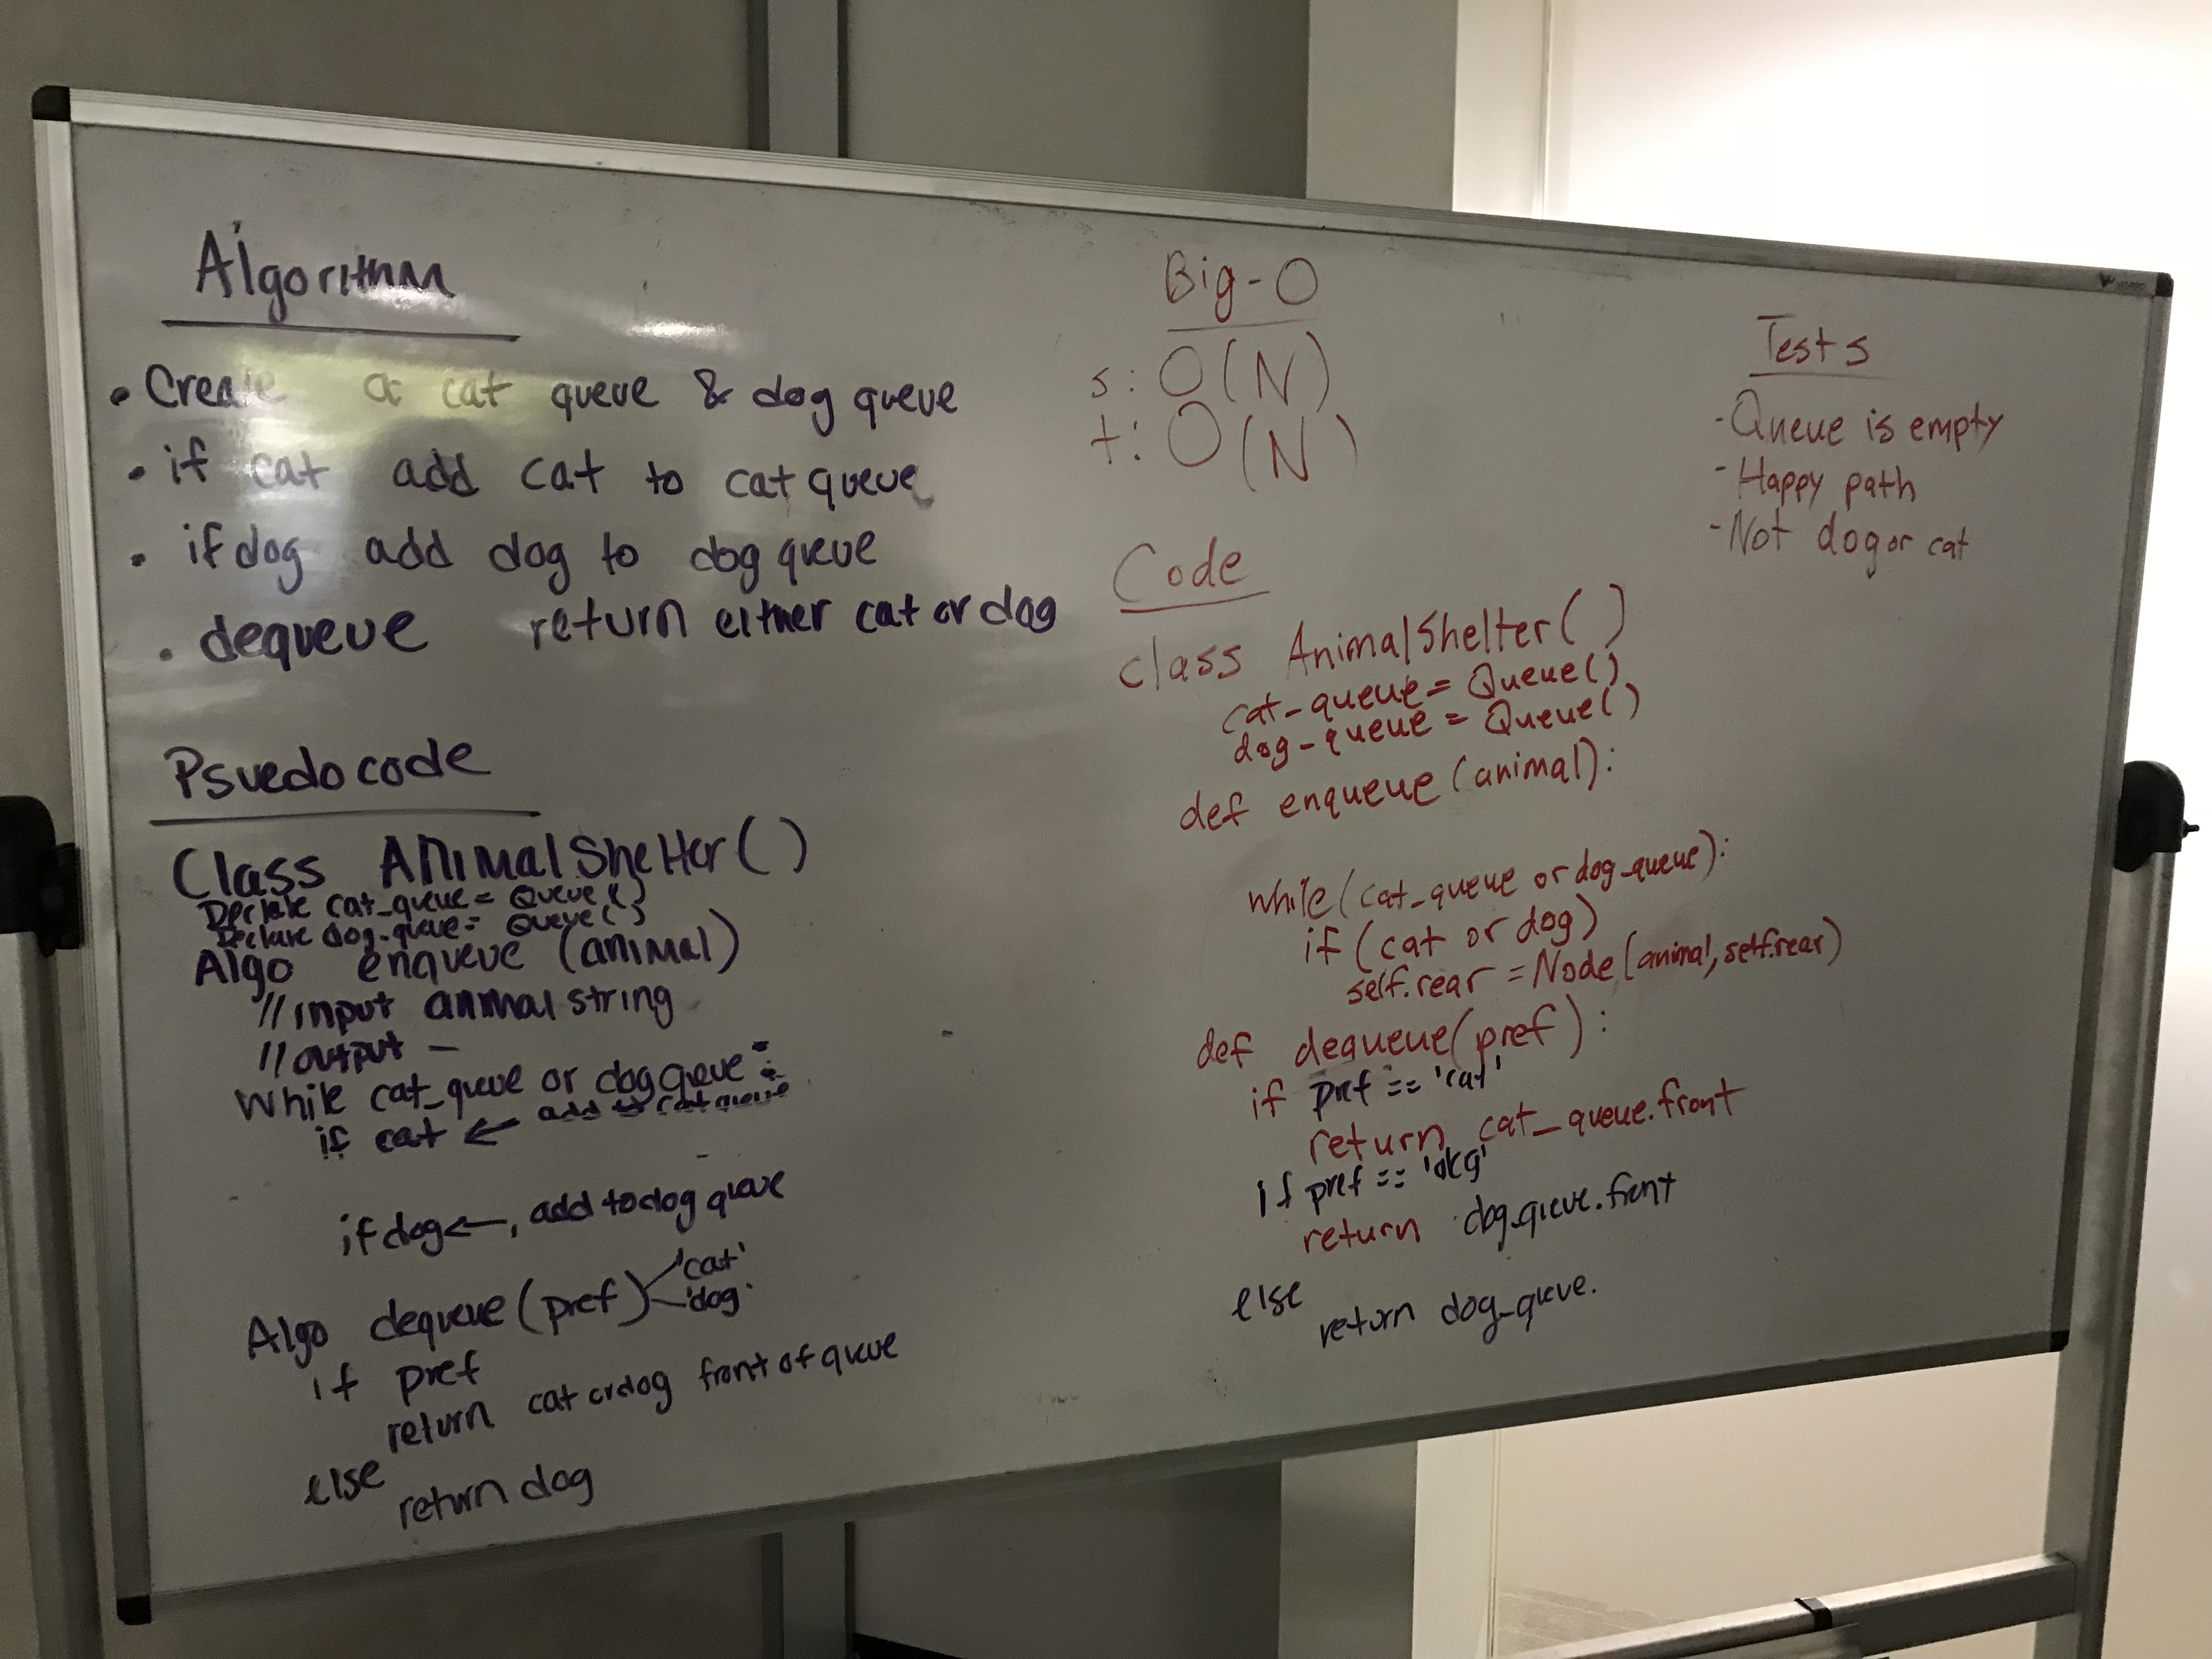 Algorithm
• Create a cat queue & dog queue
• if cat add cat to cat queue
• if dog add dog to dog queue
• dequeue return either cat or dog
Psuedocode
Class AnimalShelter()
Declare cat_queue = Queue()
Declare dog_queue = Queue()
Algo enqueue (animal)
// input animal string
// output —
While cat_queue or dog queue :
if cat ← add to cat queue
if dog ← , add to dog queue
Algo dequeue (pref) 'cat'
'dog'
if pref
return cat or dog front of queue
else
return dog
Big-O
s: O(N)
t: O(N)
Code
class AnimalShelter()
cat_queue = Queue()
dog_queue = Queue()
def enqueue (animal):
while (cat_queue or dog_queue):
if (cat or dog)
self.rear = Node(animal, self.rear)
def dequeue(pref):
if pref == 'cat'
return cat_queue.front
if pref == 'dog'
return dog_queue.front
else
return dog_queue.
Tests
- Queue is empty
- Happy path
- Not dog or cat